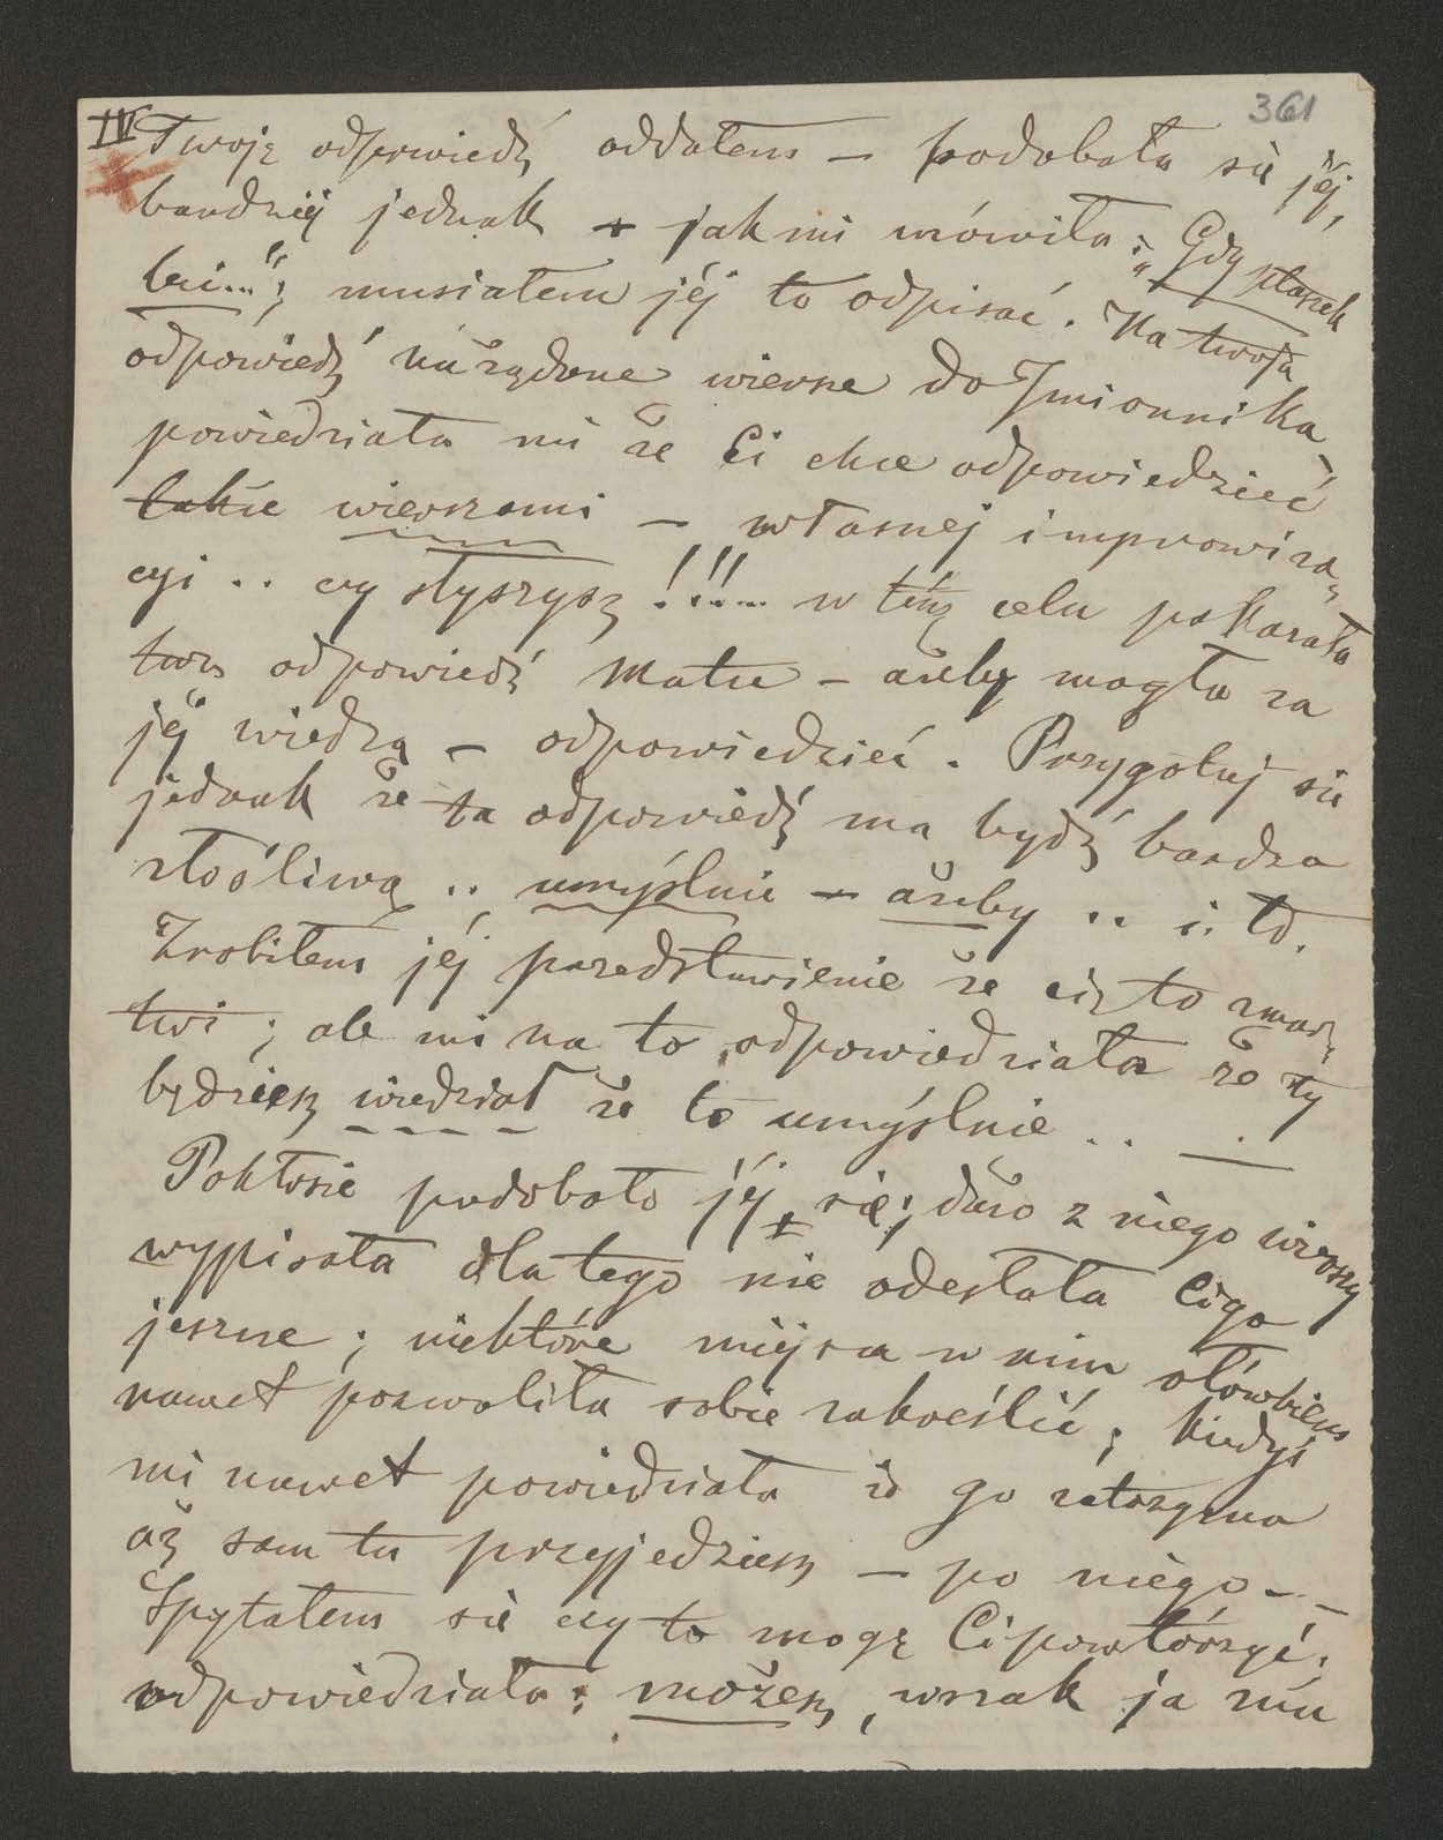 361
IV Twoję odpowiedź oddałem – podobała się jéj,
bardziéj jednak – jak mi mówiła: „Gdy ptaszek
leci..."; musiałem jéj to odpisać. Na twoja
odpówiedź na żądane wiersze do Imionnika
powiedziała mi że Ci chce odpowiedzieć
także wierszami – własnej improwiza„
cyi .. czy słyszysz !!!... w témż celu pokazała
twą odpowiedź Matce – ażeby mogła za
jéj wiedzą – odpowiedzieć. Przygotuj się
jednak że ta odpowiedź ma bydź bardzo
złośliwą .. umyślnie – ażeby .. i. td.
Zrobiłem jéj przedstawienie że cię to zmar„
twi; ale mi na to odpowiedziała że ty
będziesz wiedział że to umyślnie .. .
Pokłosie podobało jéj się; dużo z niego wierszy
wypisała dla tego nie odesłała Ci go
jeszcze; niektóre miejsca w nim ołówkiem
nawet pozwoliła sobie zakreślić; kiedyś
mi nawet powiedziała iż go zatrzyma
aż sam tu przyjedziesz – po niego –
Spytałem się czy to mogę Ci powtórzyć.
odpowiedziała: możesz, wszak ja nie